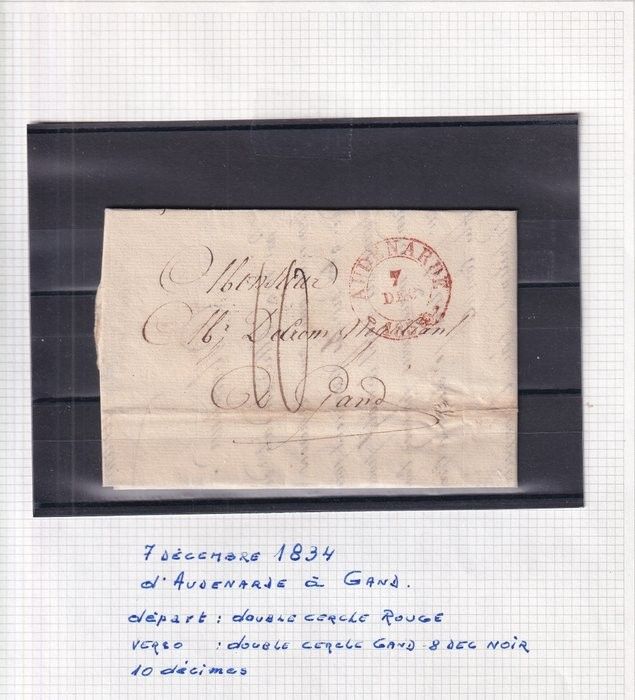 AUDENARDE
7
DEC
Monsieur
10
Mr
à Gand
7 DÉCEMBRE 1834
d'AUDENARDE à GAND.
départ : double cercle ROUGE
VERSO : double cercle GAND 8 DEC NOIR
10 décimes